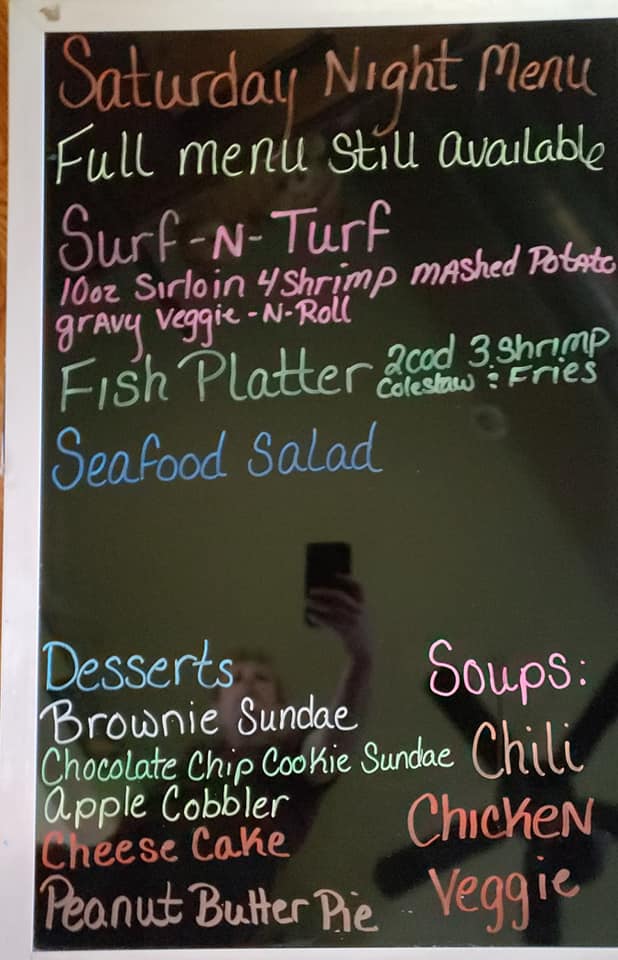 Saturday Night Menu
Full menu still available
Surf-N-Turf
10oz Sirloin 4 Shrimp mAshed PotAto
grAvy veggie-N-Roll
Fish Platter 2cod 3 shrimp
Coleslaw : Fries
Seafood Salad
Desserts
Brownie Sundae
Chocolate Chip Cookie Sundae
Apple Cobbler
Cheese Cake
Peanut Butter Pie
Soups:
Chili
ChickeN
Veggie